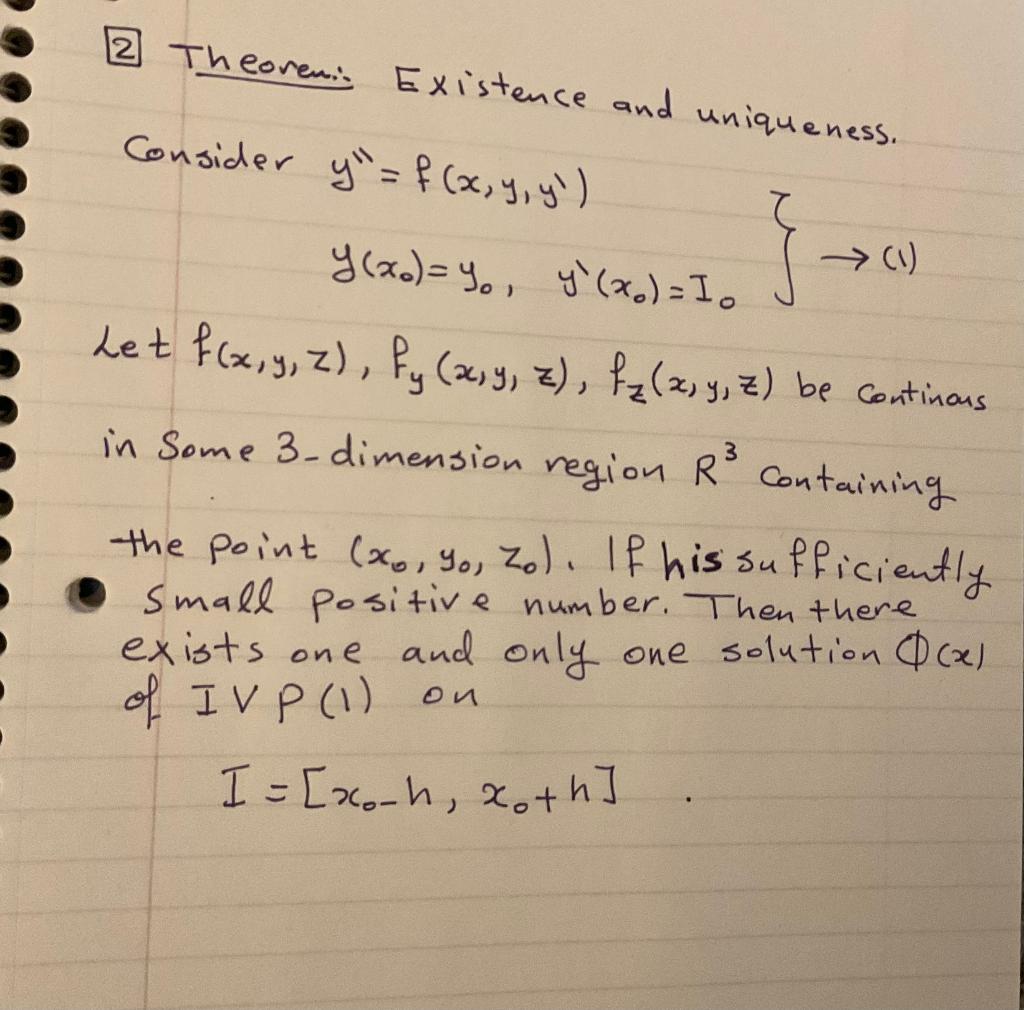 2 Theorem: Existence and uniqueness.
Consider y'' = f(x, y, y')
y(x₀) = y₀, y'(x₀) = I₀ } → (1)
Let f(x, y, z), fy (x, y, z), fz (x, y, z) be continous
in Some 3-dimension region R³ Containing
the point (x₀, y₀, z₀). If h is sufficiently
Small positive number. Then there
exists one and only one solution Φ(x)
of IVP (1) on
I = [x₀-h, x₀+h] .